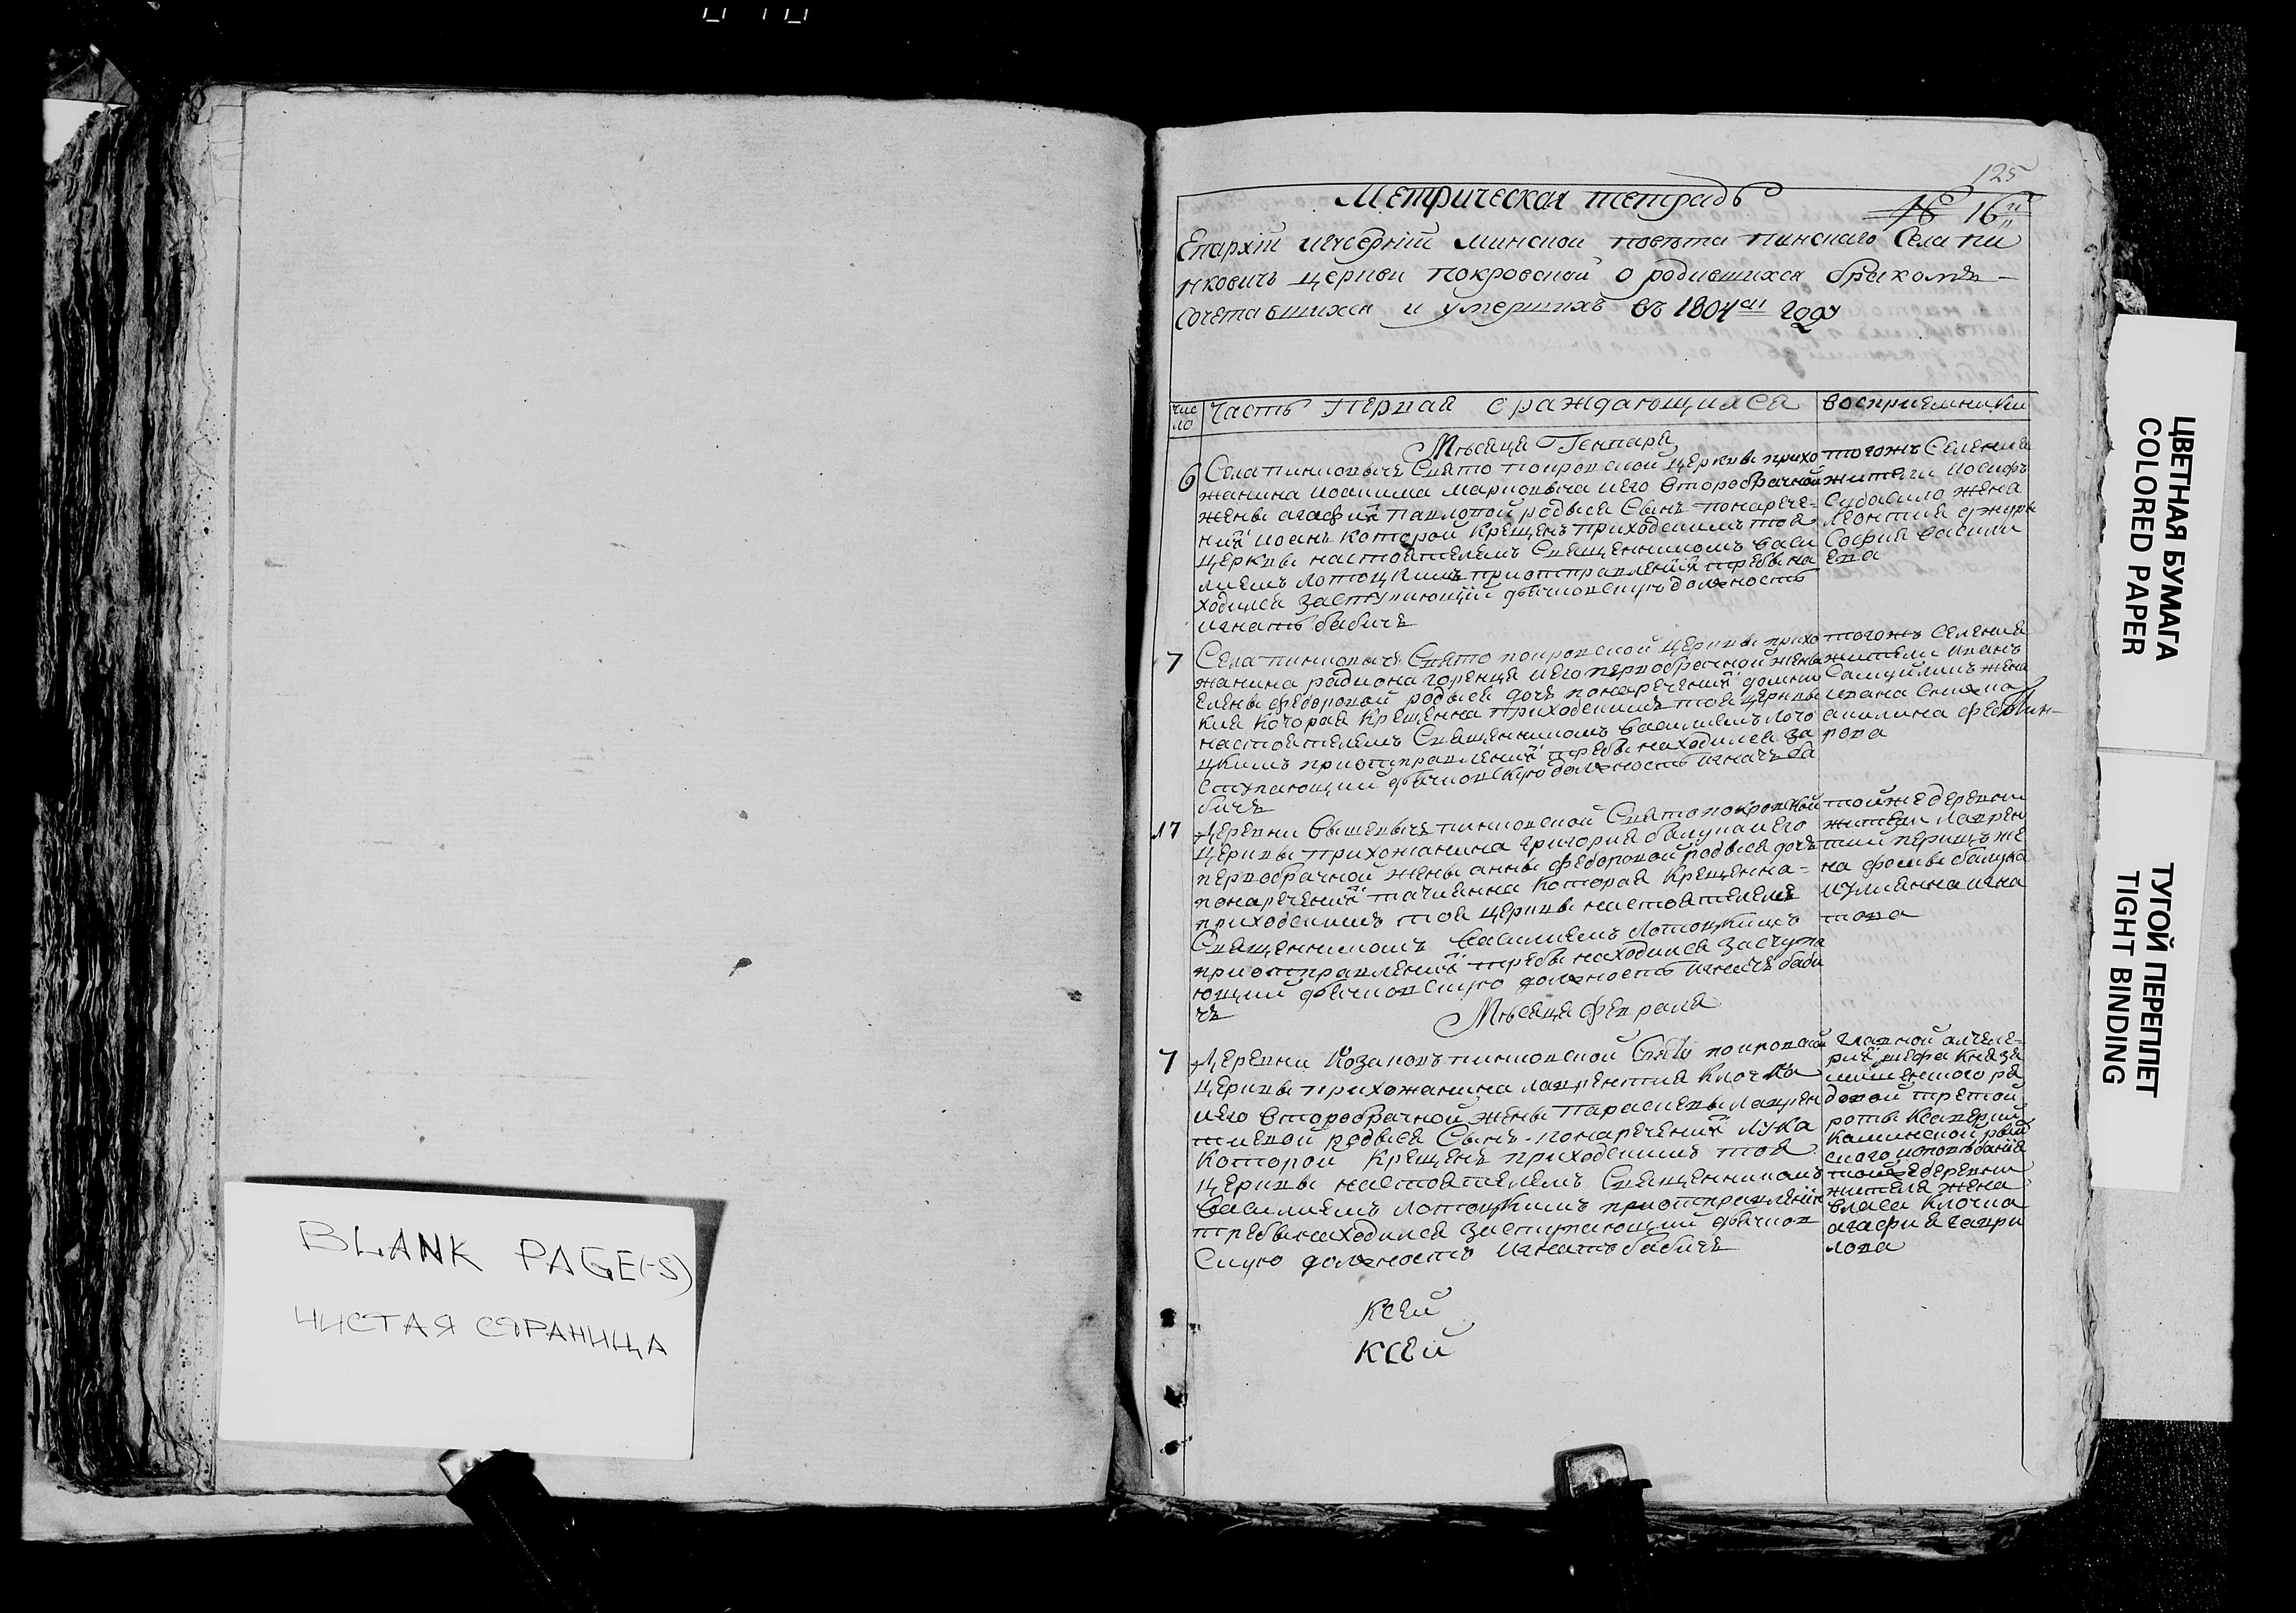 125
Метрическая тетрадь
16
Епархiи игубернiи минской повѣта пинскаго Села пи
нковичь церкви покровской о родившихся бракомъ
сочетавшихся и умершихъ въ 1804м году
чис
ло
часть Первая о раждающихся
восприемники
Мѣсяца Генваря
6
Села пинковичь Свято покровской церкви прихо
жанина иоакима марковича иего второбрачной
жены агафiи павловой родися Сынъ понарече-
нiи иоанъ которой крещенъ приходскимъ тоя
церкви настоятелемъ Священникомъ васи
лиемъ лотоцкимъ приотправленiи требы на
ходился заступающiй дьячковскую должность
игнатъ бабичь
тогожъ Селения
жители иосифъ
жена
леонтия
София васили
ева
7
Села пинковичь Свято покровской церкви прихо
жанина радиона горенца иего первобрачной жены
елены федоровой родися дочь понаречении домни
кия которая крещенна приходскимъ тоя церкви
настоятелемъ Священникомъ василиемъ лото
цкимъ приотправлении требы находился за
ступающий дьячковскую должность игнатъ ба
бичь
тогожъ селения
жители иванъ
жена
ивана
акилина федо
рова
17
Деревни вышевичь пинковской Святопокровской
церкви прихожанина григория балука иего
первобрачной жены анны федоровой родися дочь
понаречении татиянна которая крещенна-
приходскимъ тоя церкви настоятелемъ
Священникомъ василиемъ лотоцкимъ
приотправлении требы находился заступа
ющий дьячковскую должность игнатъ баби
чь
тойже деревни
жители лаврен
тий жe
на фомы балука
иулиянна игна
това
Мѣсяца февраля
7
Деревни Козаковъ пинковской Свято покровской
церкви прихожанина лаврентия клочка
иего второбрачной жены параскевы лаврен
тиевой родися Сынъ понаречении лука
которой крещенъ приходскимъ тоя
церкви настоятелемъ Священникомъ
василиемъ лотоцкимъ приотправлении
требы находился заступающий дьячков
скую должность игнатъ бабичь
главной
шефа князя
третой
роты
тойже деревни
жителя жена
власа клочка
агафия гаври
лова
ксей
ксей
BLANK PAGE(-S)
ЧИСТАЯ СТРАНИЦА
ЦВЕТНАЯ БУМАГА
COLORED PAPER
ТУГОЙ ПЕРЕПЛЕТ
TIGHT BINDING